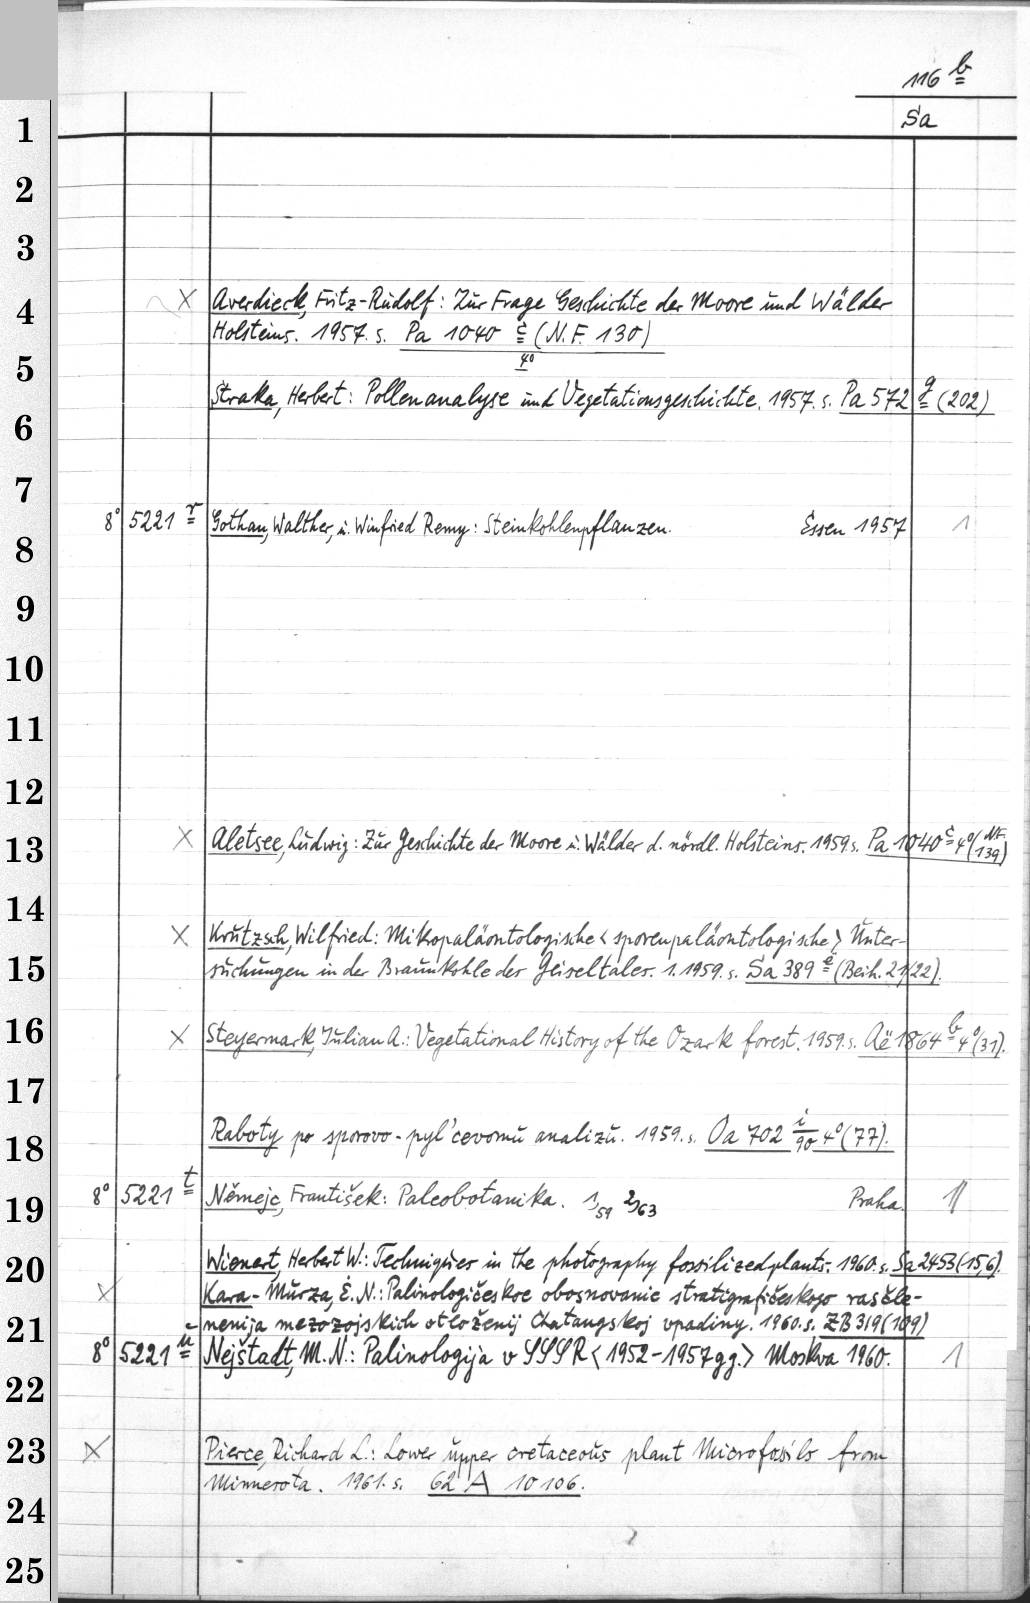 116 b
Sa
1
2
3
4 × Averdieck, Fritz-Rudolf: Zur Frage Geschichte der Moore und Wälder
Holsteins. 1957. s. Pa 1040 c (N.F. 130)
4°
5
Straka, Herbert: Pollenanalyse und Vegetationsgeschichte. 1957. s. Pa 572 g (202)
6
7
8° 5221 r Gothan, Walther, u. Winfried Remy: Steinkohlenpflanzen. Essen 1957 1
8
9
10
11
12
13 × Aletsee, Ludwig: Zur Geschichte der Moore u. Wälder d. nördl. Holsteins. 1959 s. Pa 1040 c 4° (N.F. 139)
14
× Krutzsch, Wilfried: Mikropaläontologische < sporenpaläontologische > Unter-
15 suchungen in der Braunkohle des Geiseltales. 1. 1959. s. Sa 389 e (Beih. 21/22).
16 × Steyermark, Julian A.: Vegetational History of the Ozark forest. 1959. s. Aë 1864 b 4° (31).
17
18 Raboty po sporovo-pyl'cevomu analizu. 1959. s. Oa 702 i/90 4° (77).
8° 5221 t Němejc, František: Paleobotanika. 1/59 2/63 Praha. 1
19
20 Wienert, Herbert W.: Techniques in the photography fossilized plants. 1960. s. Sa 2453 (15,6).
× Kara-Murza, Ė. N.: Palinologičeskoe obosnovanie stratigrafičeskogo rasčle-
21 nenija mezozojskich otloženij Chatangskoj vpadiny. 1960. s. ZB 319 (109)
8° 5221 u Nejštadt, M. N.: Palinologija v SSSR < 1952-1957 gg. > Moskva 1960. 1
22
23 × Pierce, Richard L.: Lower upper cretaceous plant Microfossils from
Minnesota. 1961. s. 62 A 10106.
24
25